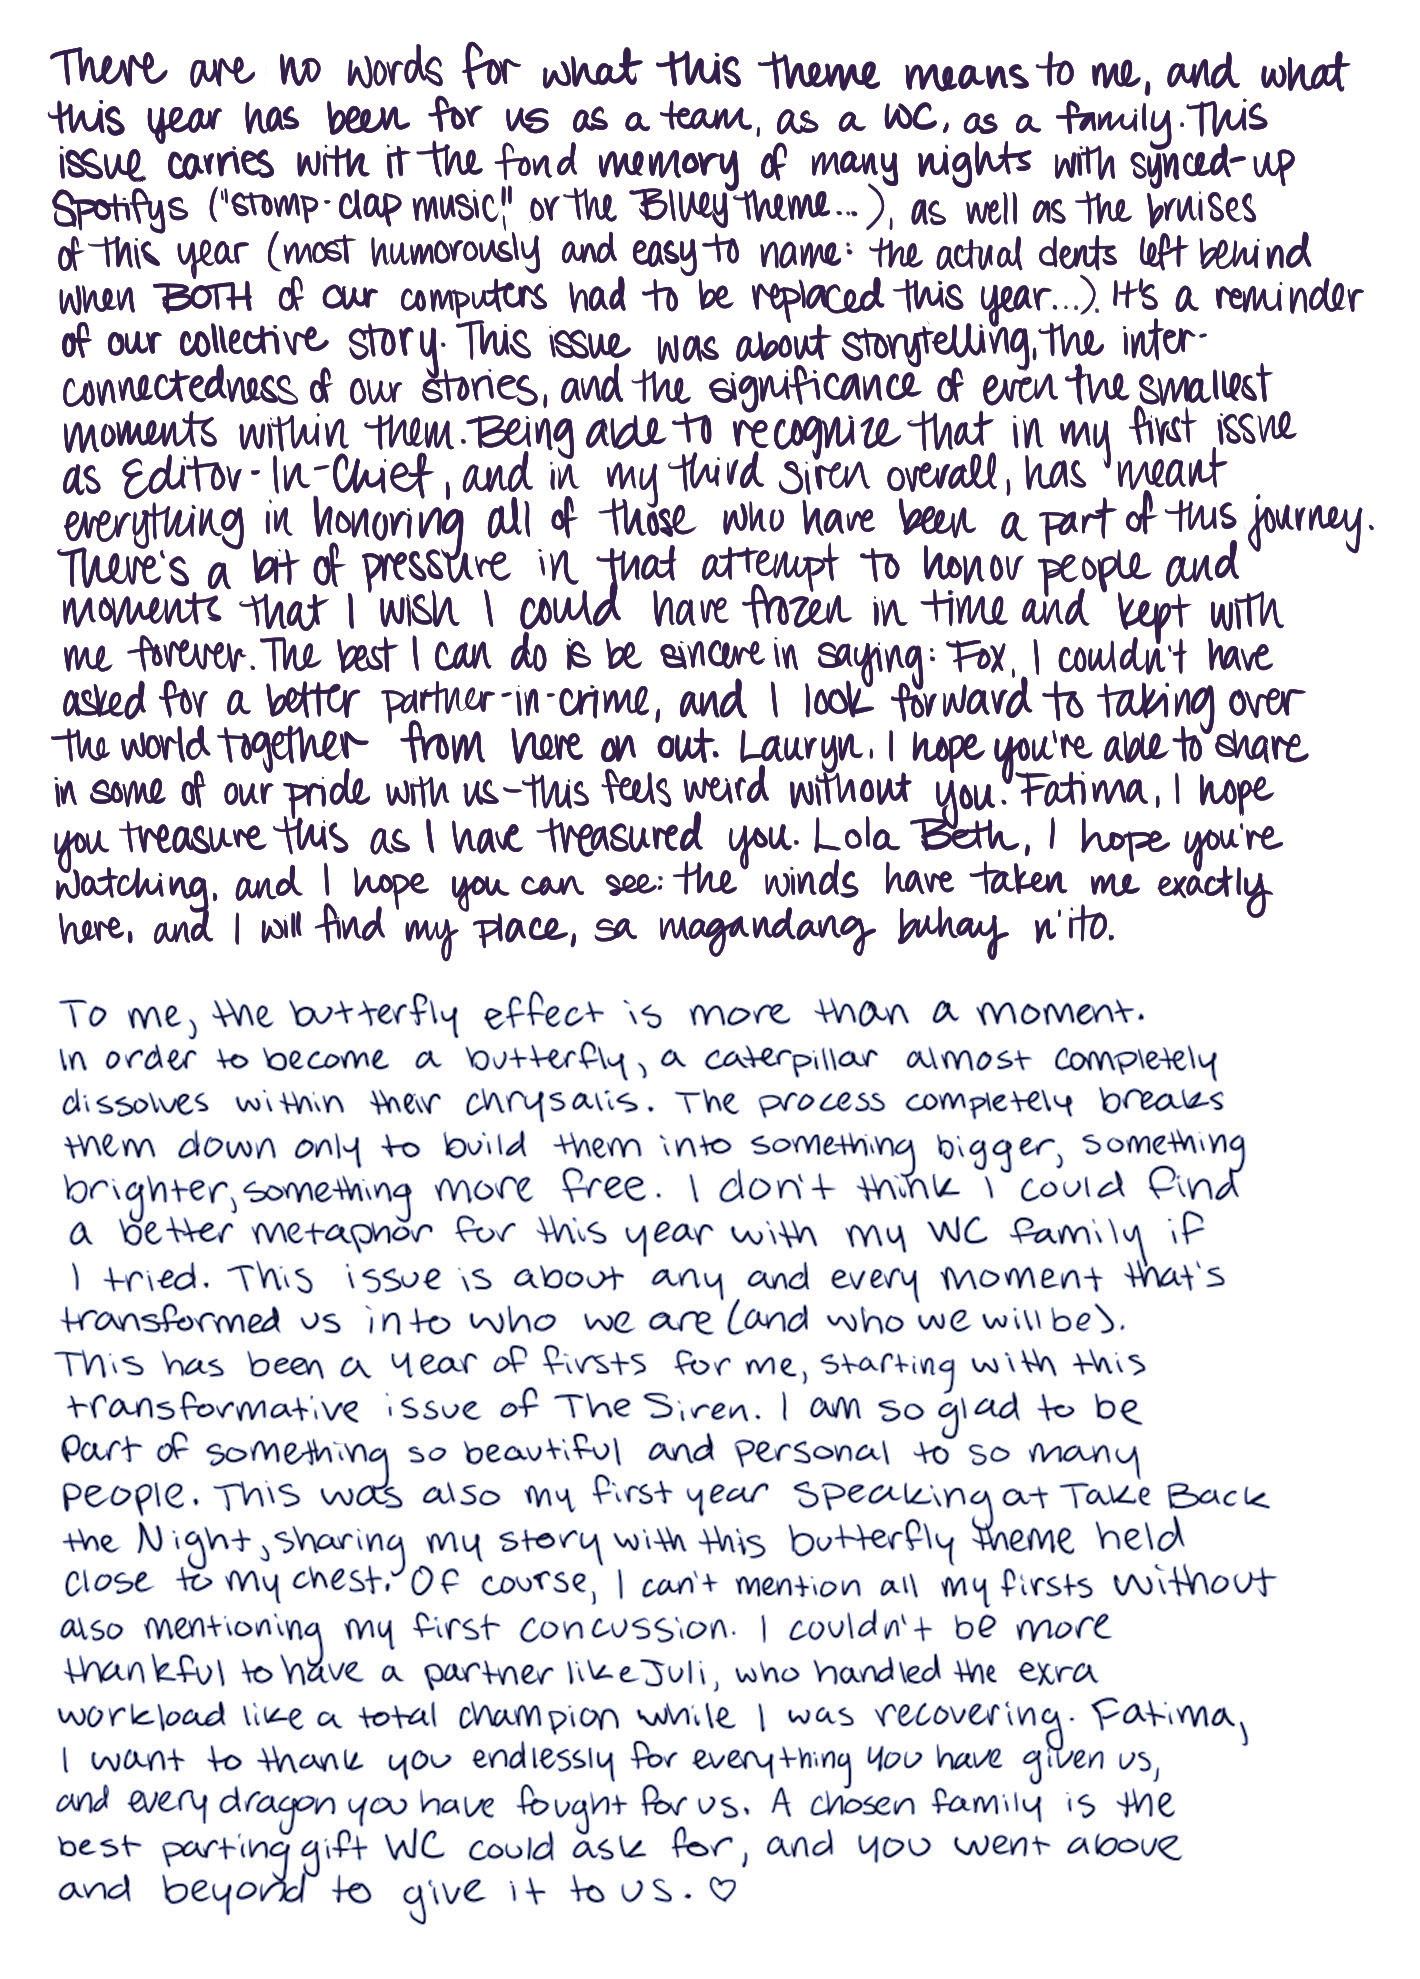 There are no words for what this theme means to me, and what
this year has been for us as a team, as a WC, as a family. This
issue carries with it the fond memory of many nights with synced-up
Spotifys ("stomp-clap music," or the Bluey theme...), as well as the bruises
of this year (most humorously and easy to name: the actual dents left behind
when BOTH of our computers had to be replaced this year...). It's a reminder
of our collective story. This issue was about storytelling, the inter-
connectedness of our stories, and the significance of even the smallest
moments within them. Being able to recognize that in my first issue
as Editor-In-Chief, and in my third Siren overall, has meant
everything in honoring all of those who have been a part of this journey.
There's a bit of pressure in that attempt to honor people and
moments that I wish I could have frozen in time and kept with
me forever. The best I can do is be sincere in saying: Fox, I couldn't have
asked for a better partner-in-crime, and I look forward to taking over
the world together from here on out. Lauryn, I hope you're able to share
in some of our pride with us-this feels weird without you. Fatima, I hope
you treasure this as I have treasured you. Lola Beth, I hope you're
watching, and I hope you can see: the winds have taken me exactly
here, and I will find my place, sa magandang buhay n'ito.
To me, the butterfly effect is more than a moment.
In order to become a butterfly, a caterpillar almost completely
dissolves within their chrysalis. The process completely breaks
them down only to build them into something bigger, something
brighter, something more free. I don't think I could find
a better metaphor for this year with my WC family if
I tried. This issue is about any and every moment that's
transformed us into who we are (and who we will be).
This has been a year of firsts for me, starting with this
transformative issue of The Siren. I am so glad to be
part of something so beautiful and personal to so many
people. This was also my first year speaking at Take Back
the Night, sharing my story with this butterfly theme held
close to my chest. Of course, I can't mention all my firsts without
also mentioning my first concussion. I couldn't be more
thankful to have a partner like Juli, who handled the exra
workload like a total champion while I was recovering. Fatima,
I want to thank you endlessly for everything you have given us,
and every dragon you have fought for us. A chosen family is the
best parting gift WC could ask for, and you went above
and beyond to give it to us. ♡